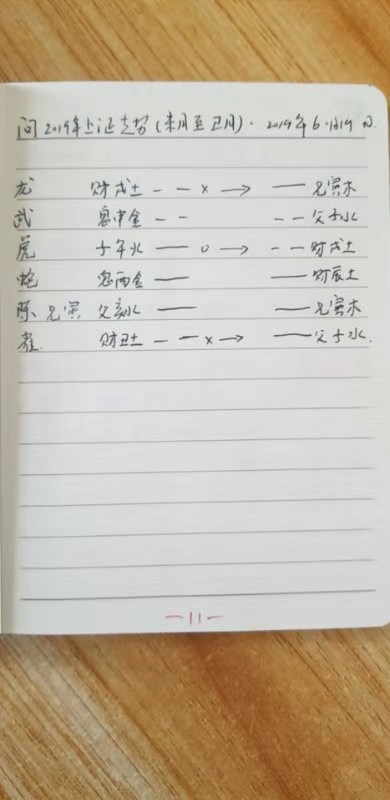 问2019年上证走势(未月至丑月)· 2019年6月19日.
龙 财戌土 - - × → — 兄寅木
武 鬼申金 - - - - 父子水
虎 子午火 — o → - - 财戌土
蛇 鬼酉金 — — 财辰土
陈 兄寅 父亥水 — — 兄寅木
雀. 财丑土 - - × → — 父子水.
-11-